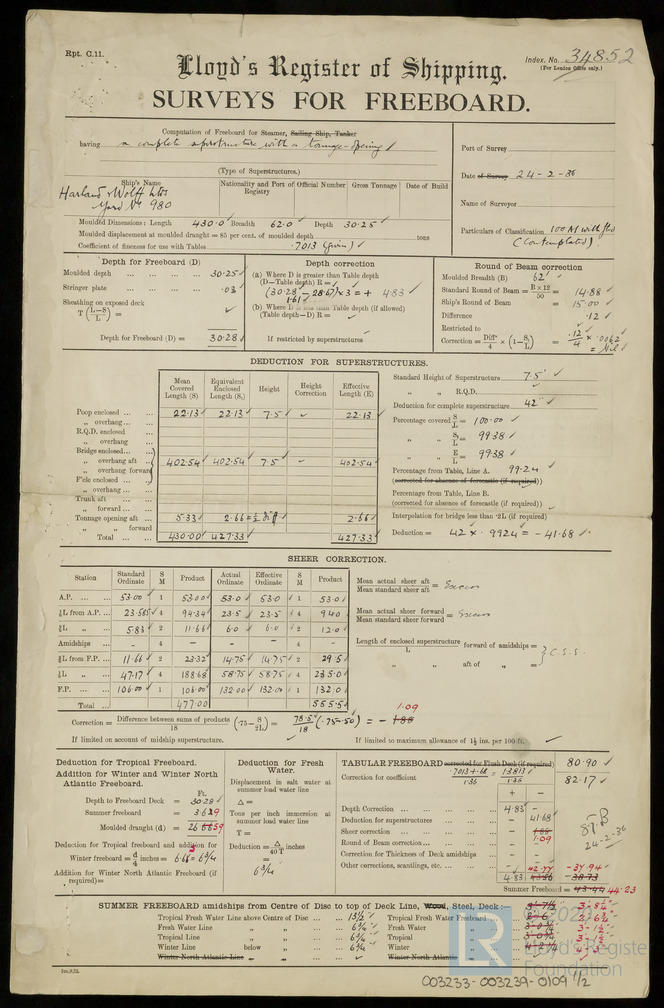 Rpt. C.11.
Index. No. 34852
(For London Office only.)
Lloyd's Register of Shipping.
SURVEYS FOR FREEBOARD.
Computation of Freeboard for Steamer, Sailing Ship, Tanker
having a complete superstructure with a tonnage-opening
(Type of Superstructures.)
Port of Survey
Date of Survey 24-2-36
Name of Surveyor
Particulars of Classification 100 A1 with fbd
(Contemplated)
Ship's Name Nationality and Port of Registry Official Number Gross Tonnage Date of Build
Harland & Wolff Ltd
Yard No 980
Moulded Dimensions: Length 430.0 Breadth 62.0 Depth 30.25
Moulded displacement at moulded draught = 85 per cent. of moulded depth tons
Coefficient of fineness for use with Tables .7013 (given)
Depth for Freeboard (D)
Moulded depth 30.25
Stringer plate .03
Sheathing on exposed deck
T (L-S/L) =
Depth for Freeboard (D) = 30.28
Depth correction
(a) Where D is greater than Table depth
(D-Table depth) R =
(30.28 - 28.67) × 3 = + 4.83
1.61
(b) Where D is less than Table depth (if allowed)
(Table depth-D) R =
If restricted by superstructures
Round of Beam correction
Moulded Breadth (B) 62'
Standard Round of Beam = B×12/50 = 14.88
Ship's Round of Beam = 15.00
Difference .12
Restricted to
Correction = Diff/4 × (1-S₁/L) = .12/4 × .0062
= Nil
DEDUCTION FOR SUPERSTRUCTURES.
Mean Covered Length (S) Equivalent Enclosed Length (S₁) Height Height Correction Effective Length (E)
Poop enclosed 22.13 22.13 7.5 22.13
„ overhang
R.Q.D. enclosed
„ overhang
Bridge enclosed
„ overhang aft 402.54 402.54 7.5 402.54
„ overhang forward
F'cle enclosed
„ overhang
Trunk aft
„ forward
Tonnage opening aft 5.33 2.66 = ½ diff 2.66
„ „ forward
Total 430.00 427.33 427.33
Standard Height of Superstructure 7.5'
„ „ R.Q.D.
Deduction for complete superstructure 42"
Percentage covered S/L = 100.00
„ „ S₁/L = 99.38
„ „ E/L = 99.38
Percentage from Table, Line A. 99.24
(corrected for absence of forecastle (if required))
Percentage from Table, Line B.
(corrected for absence of forecastle (if required))
Interpolation for bridge less than ·2L (if required)
Deduction = 42 × .9924 = -41.68
SHEER CORRECTION.
Station Standard Ordinate S M Product Actual Ordinate Effective Ordinate S M Product
A.P. 53.00 1 53.00 53.0 53.0 1 53.0
⅙L from A.P. 23.585 4 94.34 23.5 23.5 4 94.0
⅓L „ 5.83 2 11.66 6.0 6.0 2 12.0
Amidships - 4 - - - 4 -
⅓L from F.P. 11.66 2 23.32 14.75 14.75 2 29.5
⅙L „ 47.17 4 188.68 58.75 58.75 4 235.0
F.P. 106.00 1 106.00 132.00 132.00 1 132.0
Total 477.00 555.5
Mean actual sheer aft / Mean standard sheer aft = Excess
Mean actual sheer forward / Mean standard sheer forward = Excess
Length of enclosed superstructure / L forward of amidships =
„ „ aft of „ = C.S.S.
Correction = Difference between sums of products / 18 (·75-S/2L) = 78.5/18 (.75-.50) = - 1.09
If limited on account of midship superstructure.
If limited to maximum allowance of 1½ ins. per 100 ft.
Deduction for Tropical Freeboard.
Addition for Winter and Winter North Atlantic Freeboard.
Ft.
Depth to Freeboard Deck = 30.28
Summer freeboard = 3.69
Moulded draught (d) = 26.59
Deduction for Tropical freeboard and addition for
Winter freeboard = d/4 inches = 6.65 = 6¾
Addition for Winter North Atlantic Freeboard (if required) =
Deduction for Fresh Water.
Displacement in salt water at summer load water line
Δ =
Tons per inch immersion at summer load water line
T =
Deduction = Δ/40 T inches
=
6¾
TABULAR FREEBOARD corrected for Flush Deck (if required) 80.90
Correction for coefficient .7013+.68/1.36 = 1.3813/1.36 82.17
+ -
Depth Correction 4.83 -
Deduction for superstructures - 41.68
Sheer correction - 1.09
Round of Beam correction - -
Correction for Thickness of Deck amidships - -
Other corrections, scantlings, etc. - -
4.83 42.77 -37.94
Summer Freeboard = 44.23
24-2-36
SUMMER FREEBOARD amidships from Centre of Disc to top of Deck Line, Wood, Steel, Deck:
Tropical Fresh Water Line above Centre of Disc 13½
Fresh Water Line „ „ 6¾
Tropical Line „ „ 6¾
Winter Line below „ 6¾
Winter North Atlantic Line „ „
Tropical Fresh Water Freeboard
Fresh Water „
Tropical „
Winter „
Winter North Atlantic „
© 2021
Lloyd's Register
Foundation
003233-003239-0109 ½